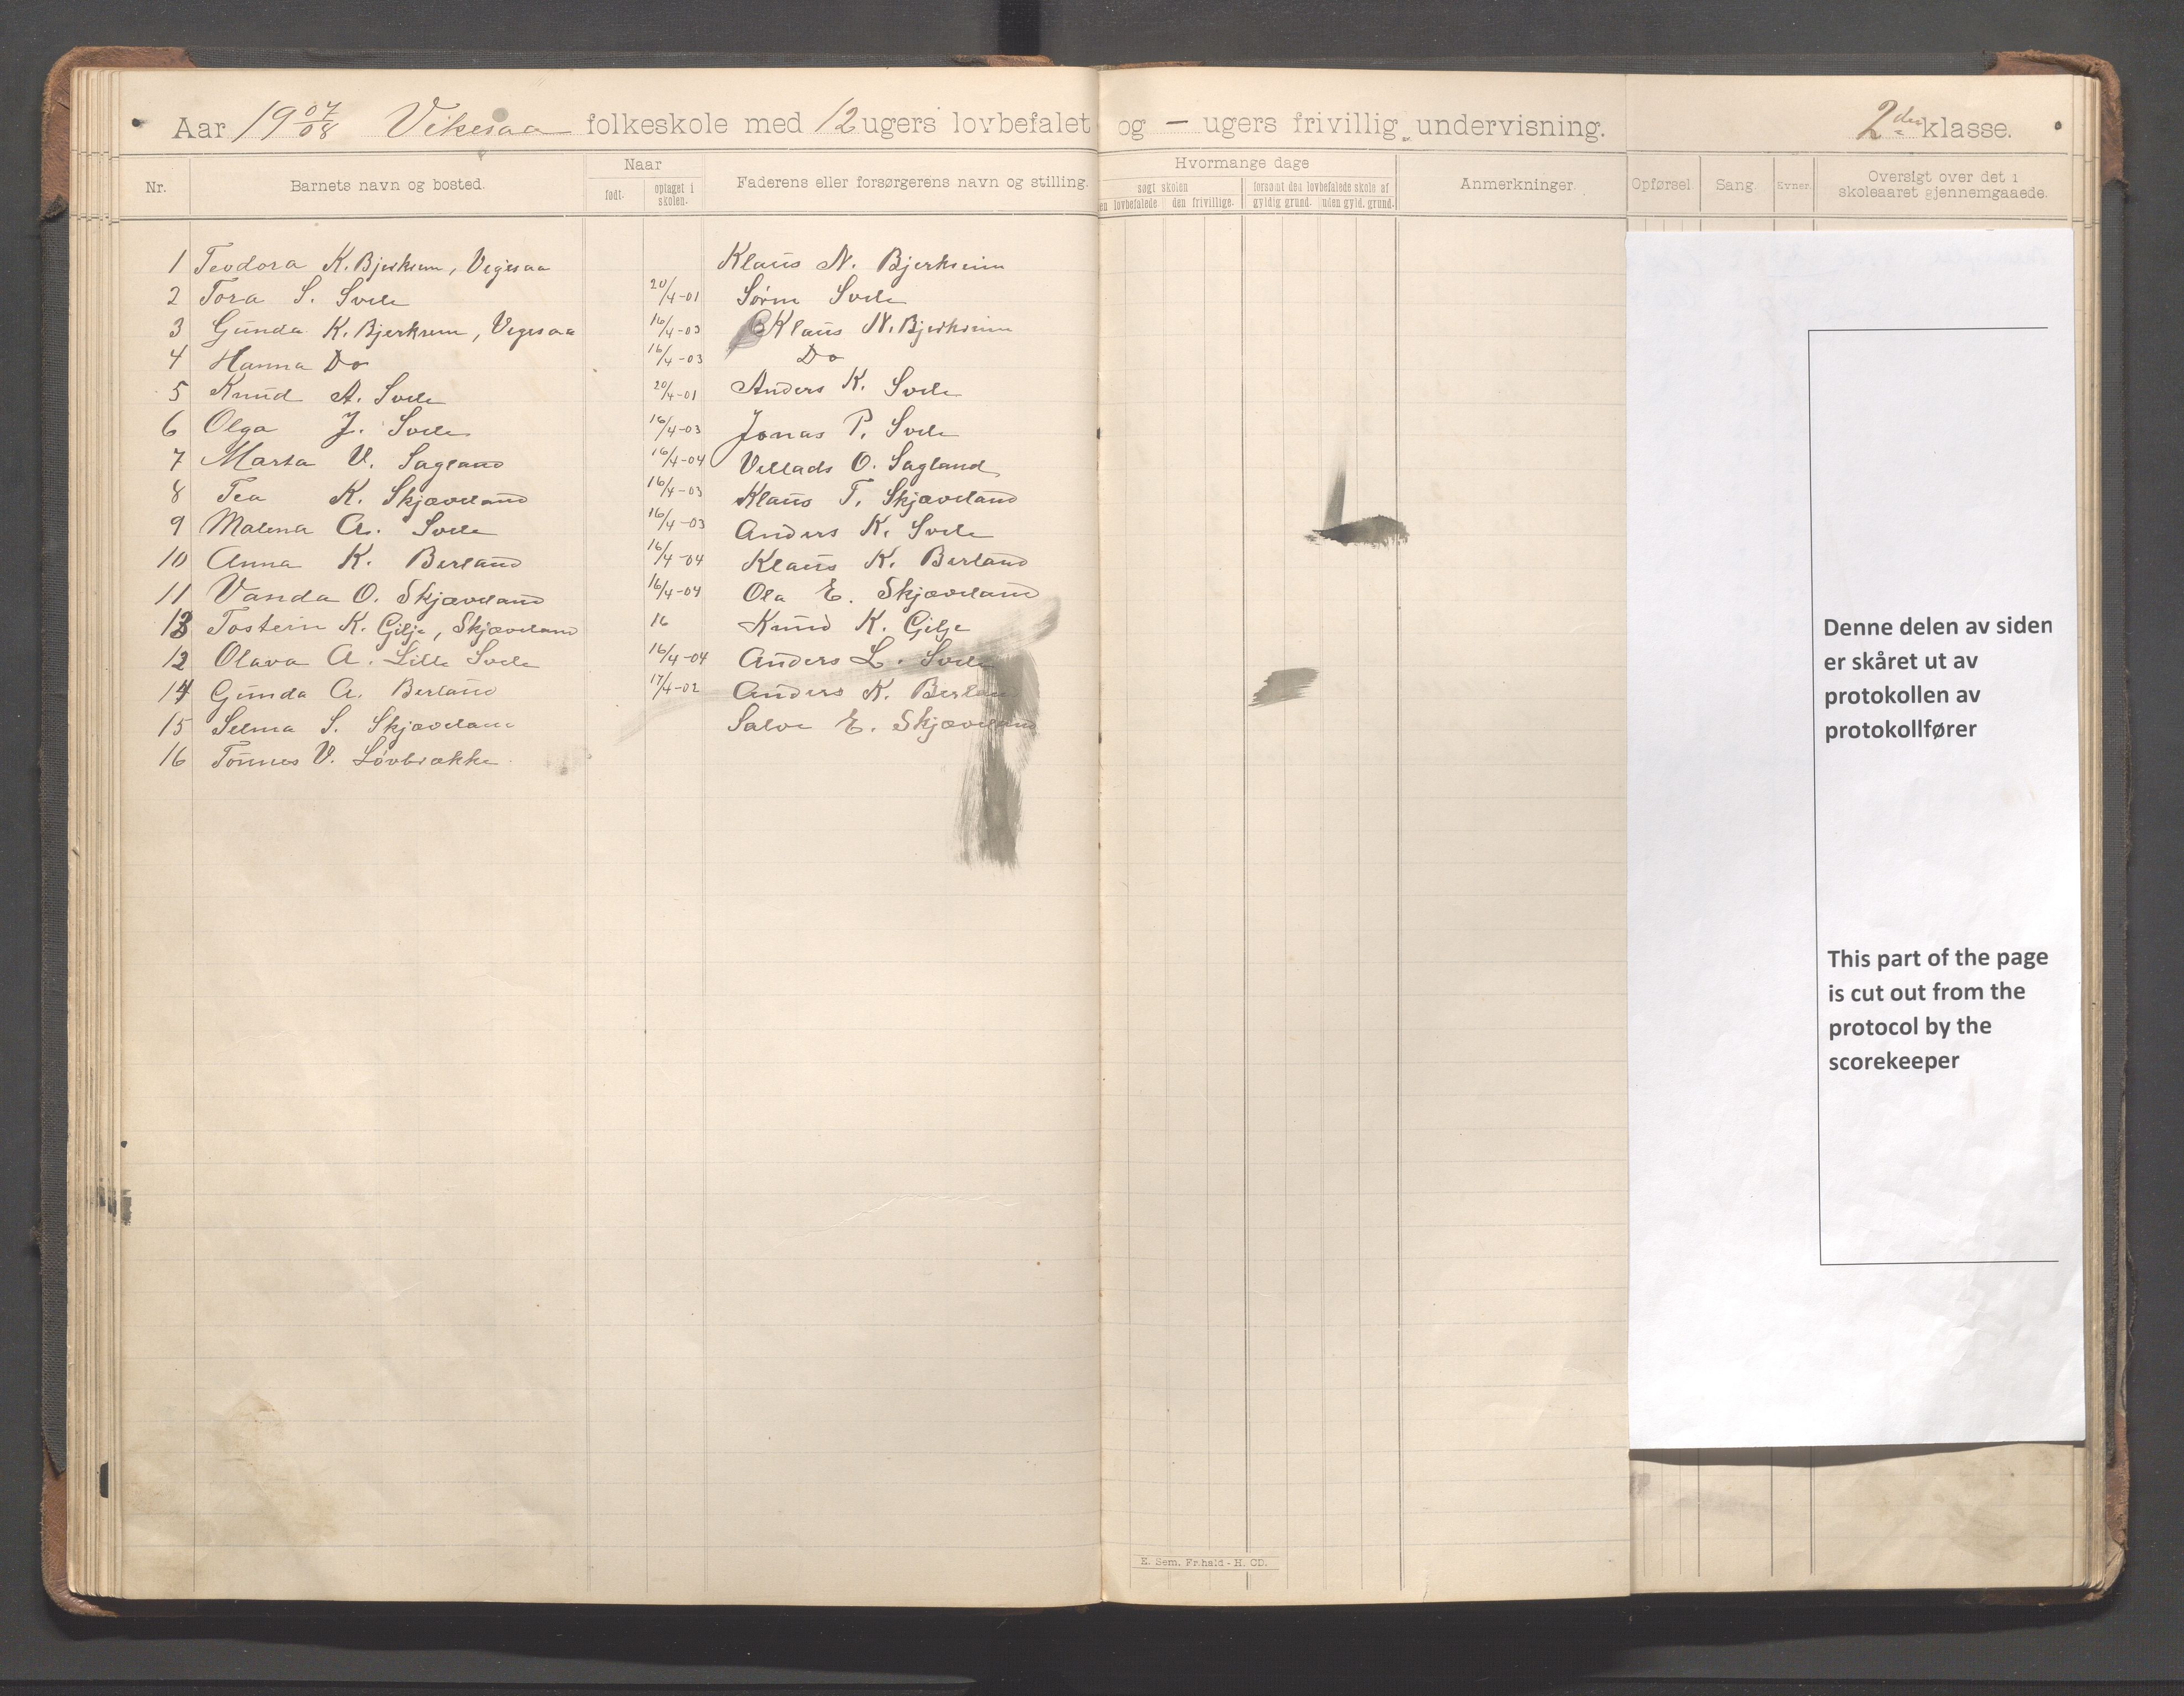 Aar 19 07/08 Vikesaa folkeskole med 12 ugers lovbefalet og – ugers frivillig undervisning. 2den klasse.
Nr. Barnets navn og bosted. Naar født. optaget i skolen. Faderens eller forsørgerens navn og stilling. Hvormange dage søgt skolen en lovbefalede. den frivillige. forsømt den lovbefalede skole af gyldig grund. uden gyld. grund. Anmerkninger. Opførsel. Sang. Evner. Oversigt over det i skoleaaret gjennemgaaede.
1 Teodora K. Bjerkrem, Vigesaa Klaus N. Bjerkreim
2 Tora S. Svele 20/4-01 Sørn Svele
3 Gunda K. Bjerkrem, Vigesaa 16/4-03 Klaus N. Bjerkreim
4 Hanna Do 16/4-03 Do
5 Knud A. Svele 20/4-01 Anders K. Svele
6 Olga J. Svele 16/4-03 Jonas P. Svele
7 Marta V. Sagland 16/4-04 Villads O. Sagland
8 Tea K. Skjæveland 16/4-03 Klaus T. Skjæveland
9 Malena A. Svele 16/4-03 Anders K. Svele
10 Anna K. Berland 16/4-04 Klaus K. Berland
11 Vanda O. Skjæveland 16/4-04 Ola E. Skjæveland
13 Tostein K. Gilje, Skjæveland 16 Knud K. Gilje
12 Olava A. Lille Svele 16/4-04 Anders L. Svele
14 Gunda A. Berland 17/4-02 Anders K. Berland
15 Selma S. Skjæveland Salve E. Skjæveland
16 Tønnes V. Løvbrække
Denne delen av siden
er skåret ut av
protokollen av
protokollfører
This part of the page
is cut out from the
protocol by the
scorekeeper
E. Sem, Fr.hald - H. CD.